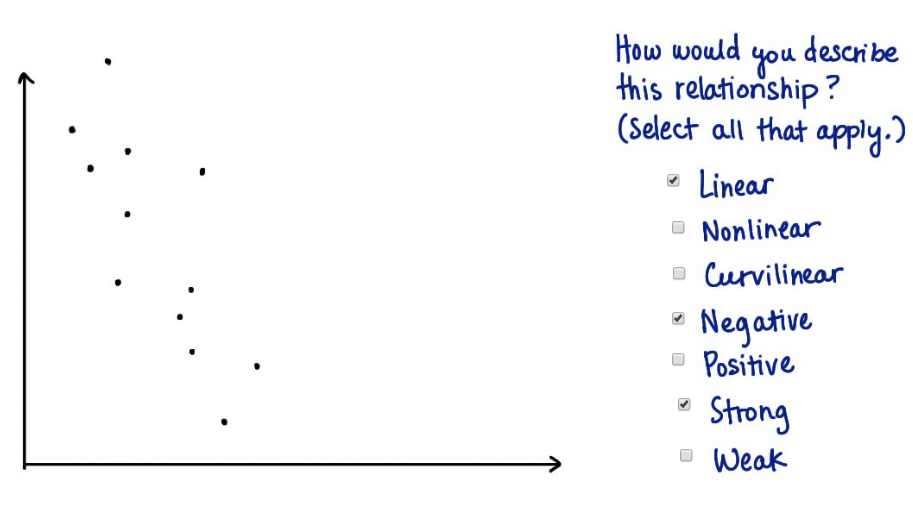 How would you describe
this relationship?
(Select all that apply.)
Linear
Nonlinear
Curvilinear
Negative
Positive
Strong
Weak